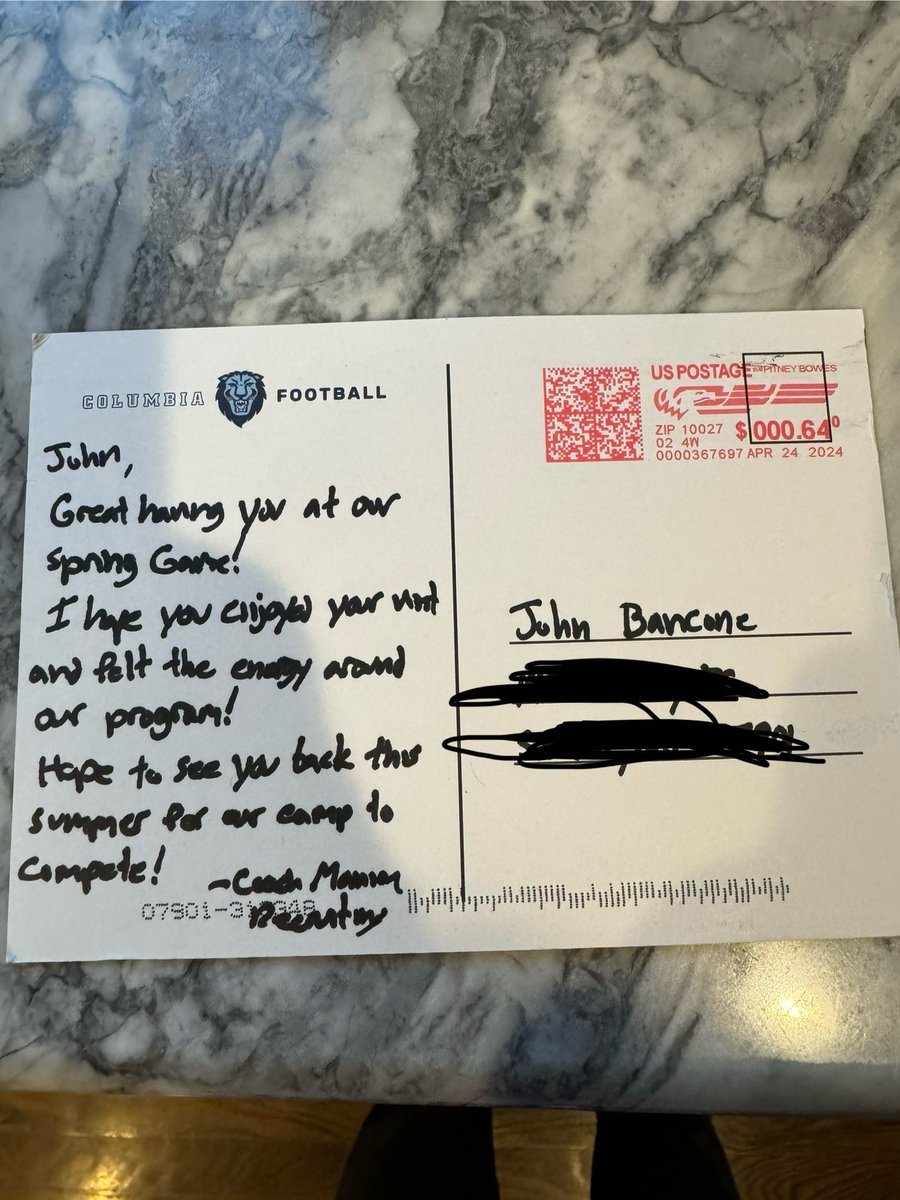 COLUMBIA FOOTBALL
John,
Great having you at our
Spring Game!
I hope you enjoyed your visit
and felt the energy around
our program!
Hope to see you back this
summer for our camp to
compete!
-Coach
Recruiting
07901-31
US POSTAGE PITNEY BOWES
ZIP 10027 $ 000.640
02 4W
0000367697 APR 24 2024
John Barcone